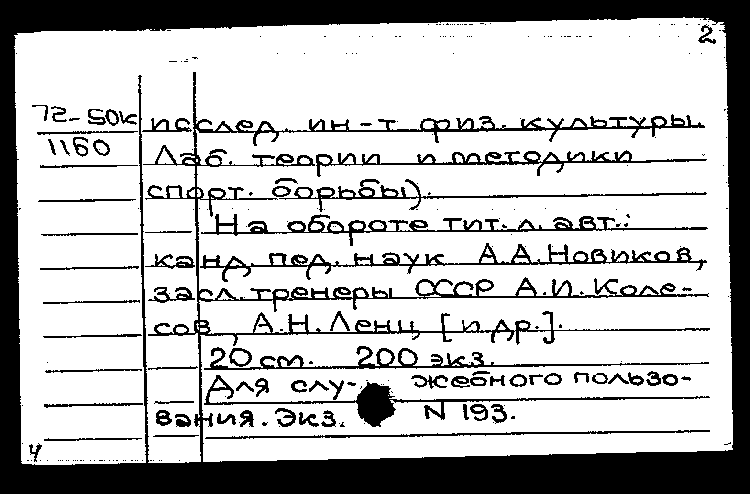 2
72-50к исслед. ин-т физ. культуры.
1160 Лаб. теории и методики
спорт. борьбы).
На обороте тит. л. авт.:
канд. пед. наук А.А. Новиков,
засл. тренеры СССР А.И. Коле-
сов, А.Н. Ленц [и др.].
20 см. 200 экз.
Для слу- жебного пользо-
вания. Экз. N 193.
ч